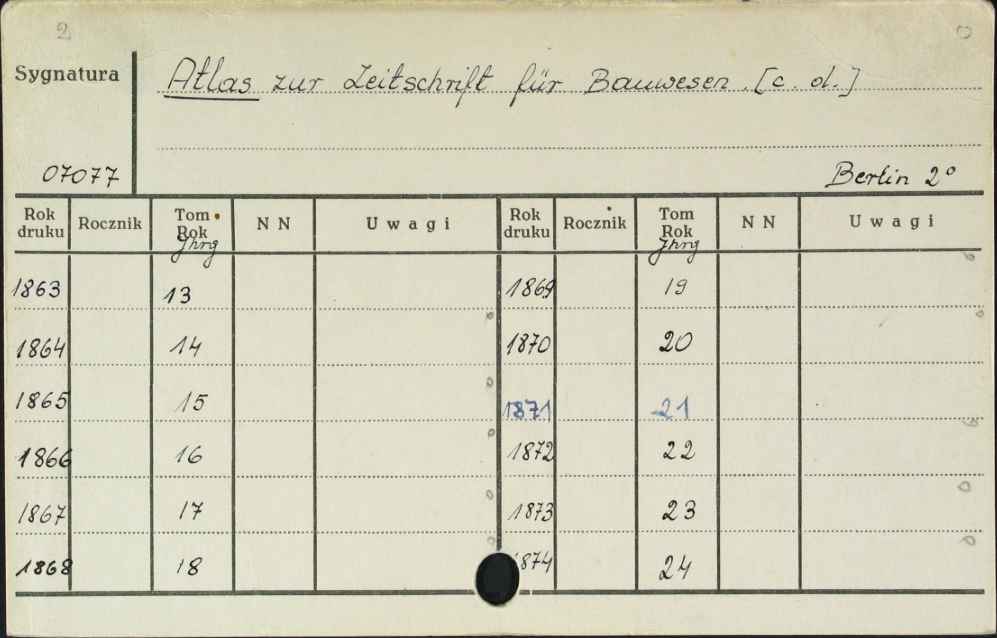 2
0
Sygnatura
Atlas zur Zeitschrift für Bauwesen. [c. d.]
07077
Berlin 2°
Rok druku Rocznik Tom Rok Jhrg NN Uwagi Rok druku Rocznik Tom Rok Jhrg NN Uwagi
1863 13 1869 19
1864 14 1870 20
1865 15 1871 21
1866 16 1872 22
1867 17 1873 23
1868 18 1874 24